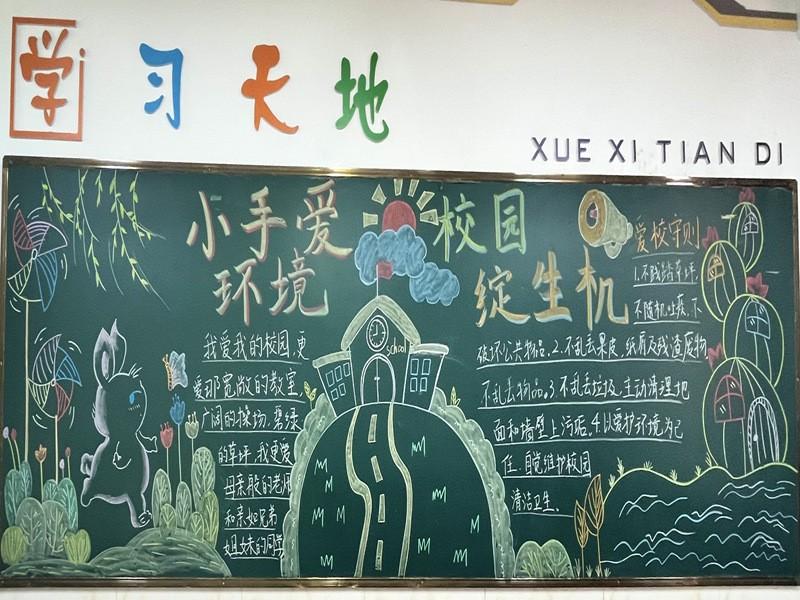 学习天地
XUE XI TIAN DI
小手爱
环境
校园
绽生机
school
我爱我的校园,更
爱那宽敞的教室,
广阔的操场,碧绿
的草坪,我更爱
母亲般的老师
和亲如兄弟
姐妹的同学
爱校守则
1.不践踏草坪,
不随机吐痰,不
破坏公共物品。2.不乱丢果皮 纸屑及残渣废物
不乱丢物品。3.不乱丢垃圾,主动清理地
面和墙壁上污垢。4.以爱护环境为己
任,自觉维护校园
清洁卫生。